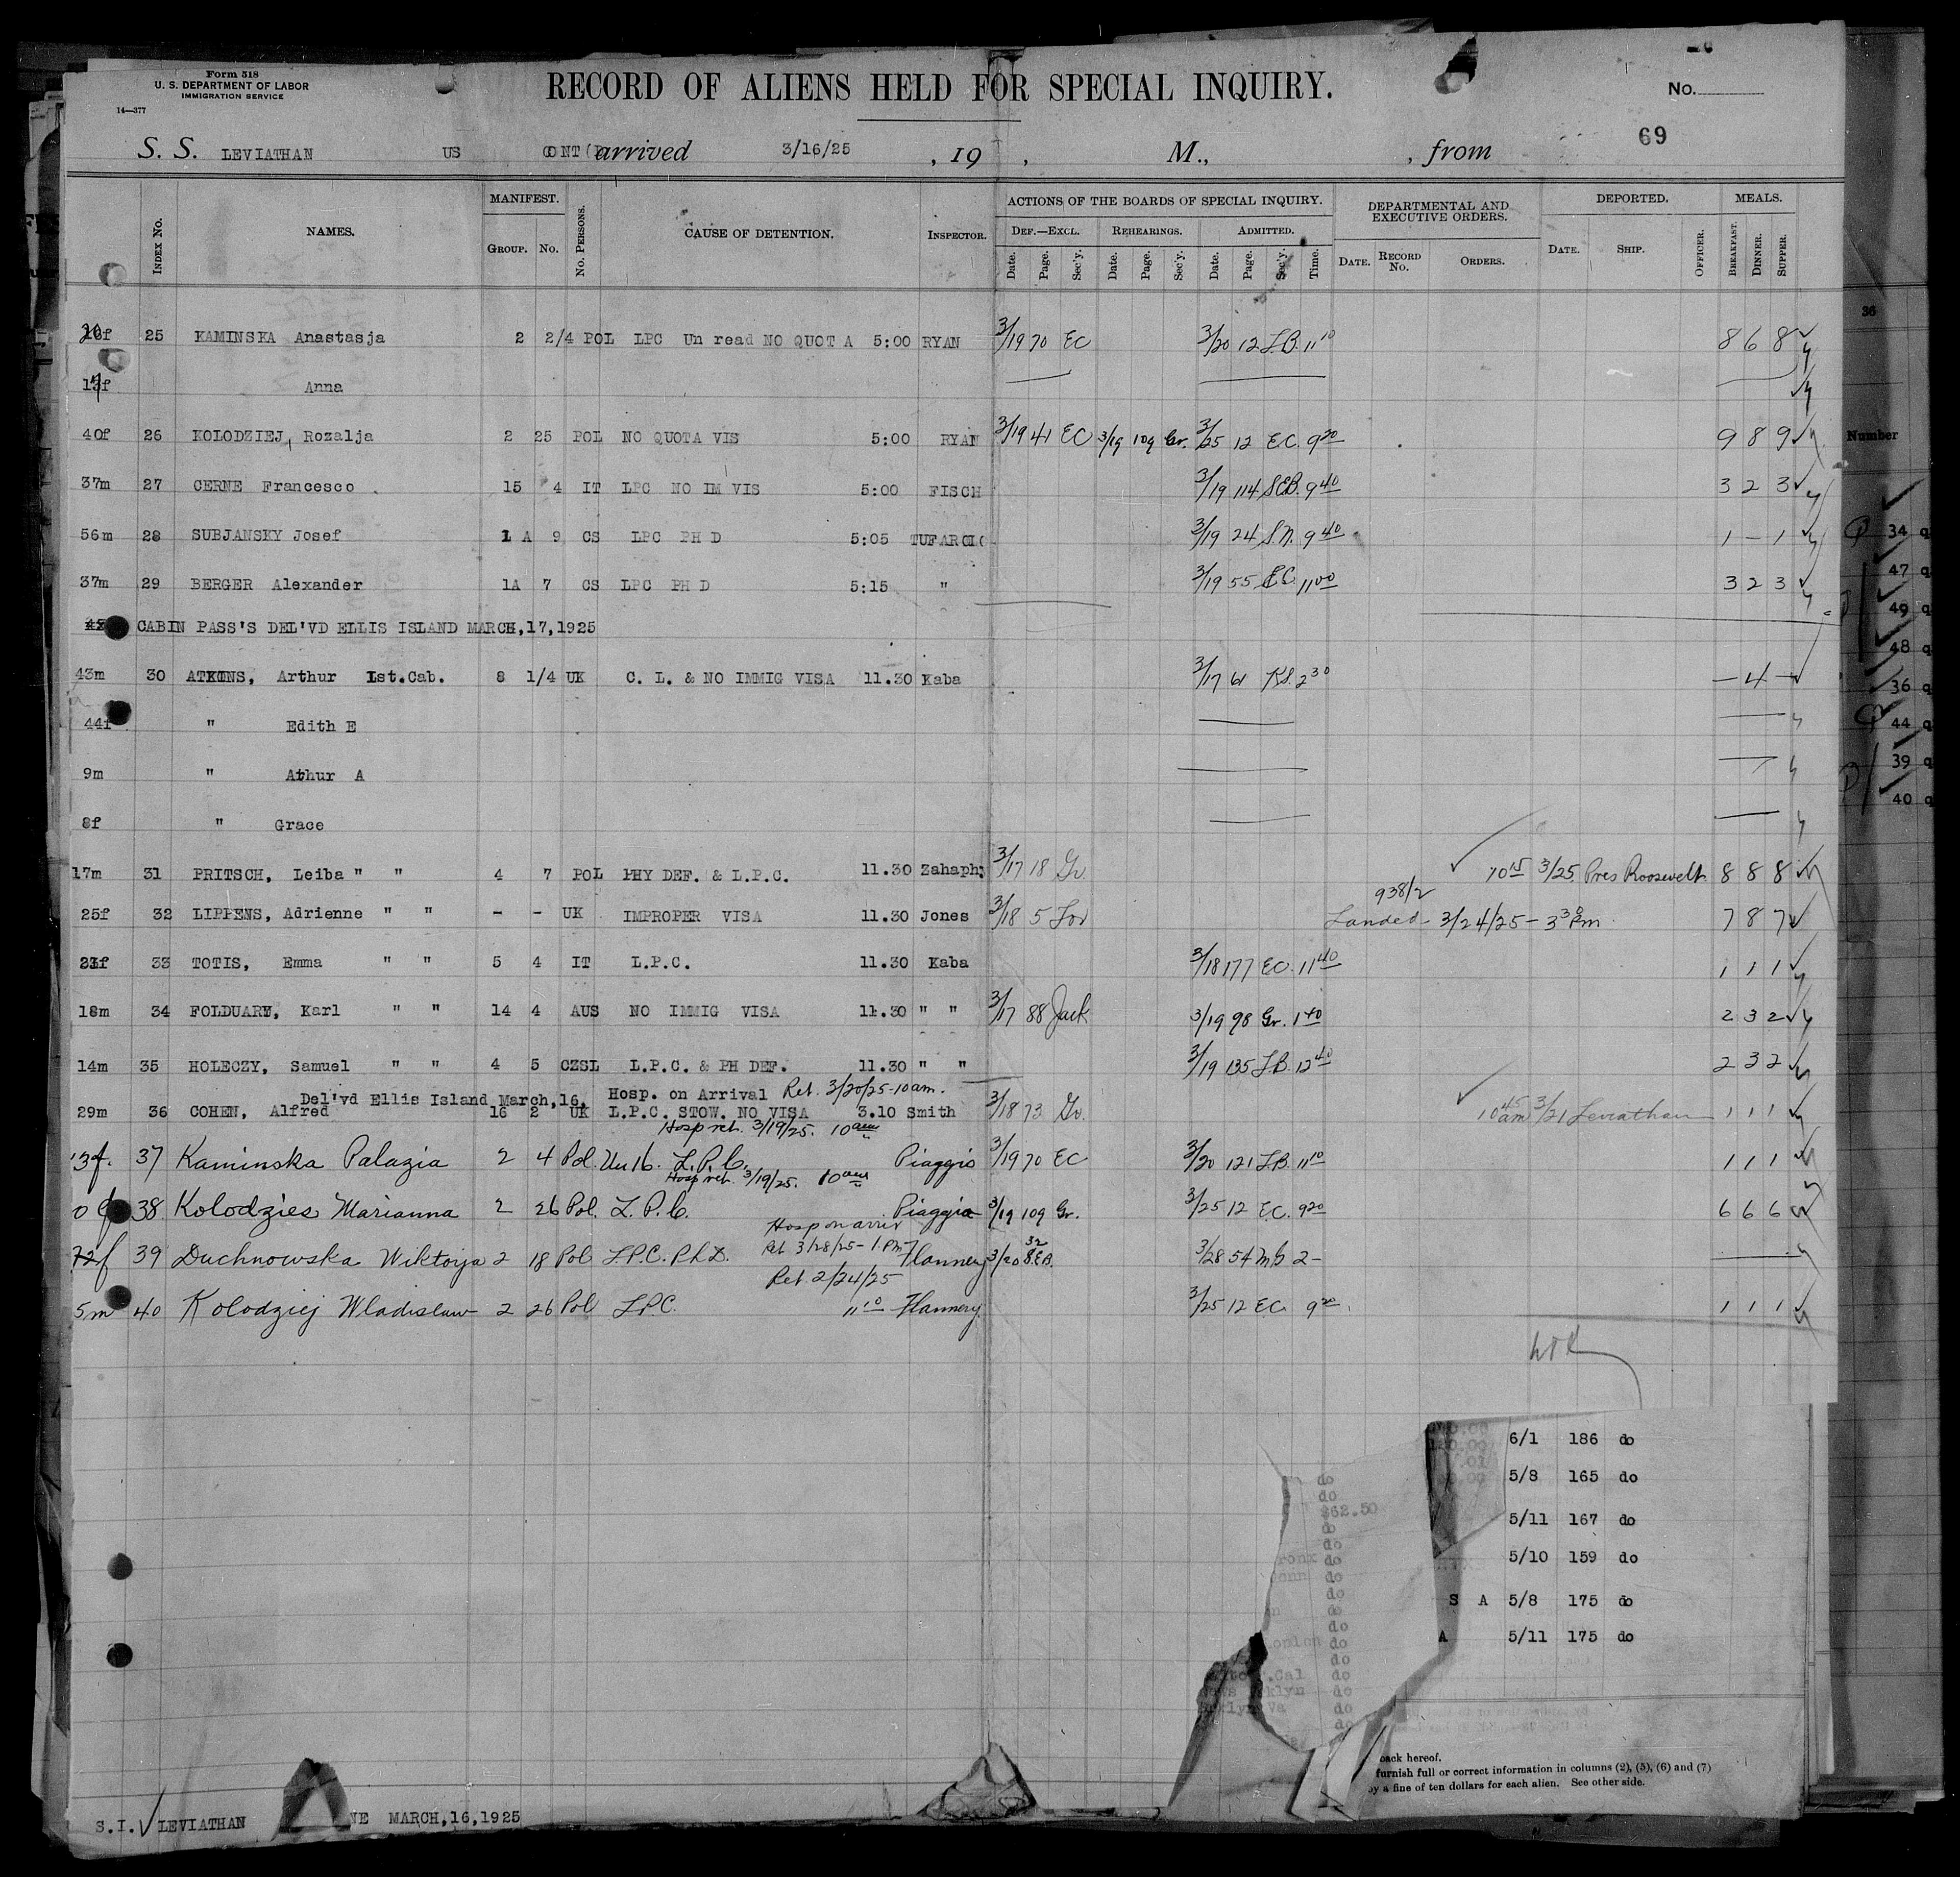 Form 518
U. S. DEPARTMENT OF LABOR
IMMIGRATION SERVICE
14—377
RECORD OF ALIENS HELD FOR SPECIAL INQUIRY.
No.
69
S. S. LEVIATHAN US CONT(D arrived 3/16/25 , 19 , M., , from
Index No. NAMES. MANIFEST. Group. No. No. Persons. CAUSE OF DETENTION. Inspector. ACTIONS OF THE BOARDS OF SPECIAL INQUIRY. DEPARTMENTAL AND EXECUTIVE ORDERS. DEPORTED. MEALS.
Def.—Excl. Rehearings. Admitted.
Date. Page. Sec'y. Date. Page. Sec'y. Date. Page. Sec'y. Time. Date. Record No. Orders. Date. Ship. Officer. Breakfast. Dinner. Supper.
25 KAMINSKA Anastasja 2 2/4 POL LPC Un read NO QUOT A 5:00 RYAN 3/19 70 EC 3/20 12 L.B. 11 10 8 6 8
Anna
40f 26 KOLODZIEJ, Rozalja 2 25 POL NO QUOTA VIS 5:00 RYAN 3/19 41 EC 3/19 109 Gr. 3/25 12 E.C. 9 20 9 8 9
37m 27 CERNE Francesco 15 4 IT LPC NO IM VIS 5:00 FISCH 3/19 114 S.E.B. 9 40 3 2 3
56m 28 SUBJANSKY Josef 1 A 9 CS LPC PH D 5:05 3/19 24 S.N. 9 40 1 — 1
37m 29 BERGER Alexander 1A 7 CS LPC PH D 5:15 " 3/19 55 E.C. 11 00 3 2 3
CABIN PASS'S DEL'VD ELLIS ISLAND MARCH,17,1925
43m 30 ATKINS, Arthur 1st.Cab. 8 1/4 UK C. L. & NO IMMIG VISA 11.30 Kaba 3/17 61 K.S. 2 30 — 4 —
44f " Edith E
9m " Athur A
8f " Grace
17m 31 PRITSCH, Leiba " " 4 7 POL PHY DEF. & L.P.C. 11.30 Zahaph 3/17 18 Gr 10 15 3/25 Pres Roosevelt 8 8 8
938/2
25f 32 LIPPENS, Adrienne " " - - UK IMPROPER VISA 11.30 Jones 3/18 5 Landed 3/24/25 - 3 30 Pm 7 8 7
33 TOTIS, Emma " " 5 4 IT L.P.C. 11.30 Kaba 3/18 177 E.C. 11 40 1 1 1
18m 34 FOLDUARY, Karl " " 14 4 AUS NO IMMIG VISA 11.30 " " 3/17 88 Jack 3/19 98 Gr. 1 40 2 3 2
14m 35 HOLECZY, Samuel " " 4 5 CZSL L.P.C. & PH DEF. 11.30 " " 3/19 135 L.B. 12 40 2 3 2
Del'vd Ellis Island March,16, Hosp. on Arrival Ret. 3/20/25-10am.
29m 36 COHEN, Alfred 16 2 UK L.P.C. STOW. NO VISA 3.10 Smith 3/18 73 Gr. 10 45 am 3/21 Leviathan 1 1 1
Hosp ret. 3/19/25. 10 am
37 Kaminska Palazia 2 4 Pol. Un 16. L.P.C. Piaggio 3/19 70 EC 3/20 121 L.B. 11 10 1 1 1
Hosp ret. 3/19/25. 10 am
38 Kolodzies Marianna 2 26 Pol. L.P.C. Piaggio 3/19 109 Gr. 3/25 12 E.C. 9 20 6 6 6
Hosp on arriv
Ret 3/28/25 - 1 Pm
39 Duchnowska Wiktorja 2 18 Pol L.P.C. Ph.D. Flannery 3/20 3/28 54 2 -
Ret. 2/24/25
5m 40 Kolodziej Wladislaw 2 26 Pol L.P.C. 11 10 Flannery 3/25 12 E.C. 9 20 1 1 1
36
Number
34 q
47 q
49 q
48 q
36 q
44 q
39 q
40 q
6/1 186 do
5/8 165 do
5/11 167 do
5/10 159 do
S A 5/8 175 do
A 5/11 175 do
$62.50
back hereof.
furnish full or correct information in columns (2), (5), (6) and (7)
by a fine of ten dollars for each alien. See other side.
S.I. LEVIATHAN NE MARCH,16,1925